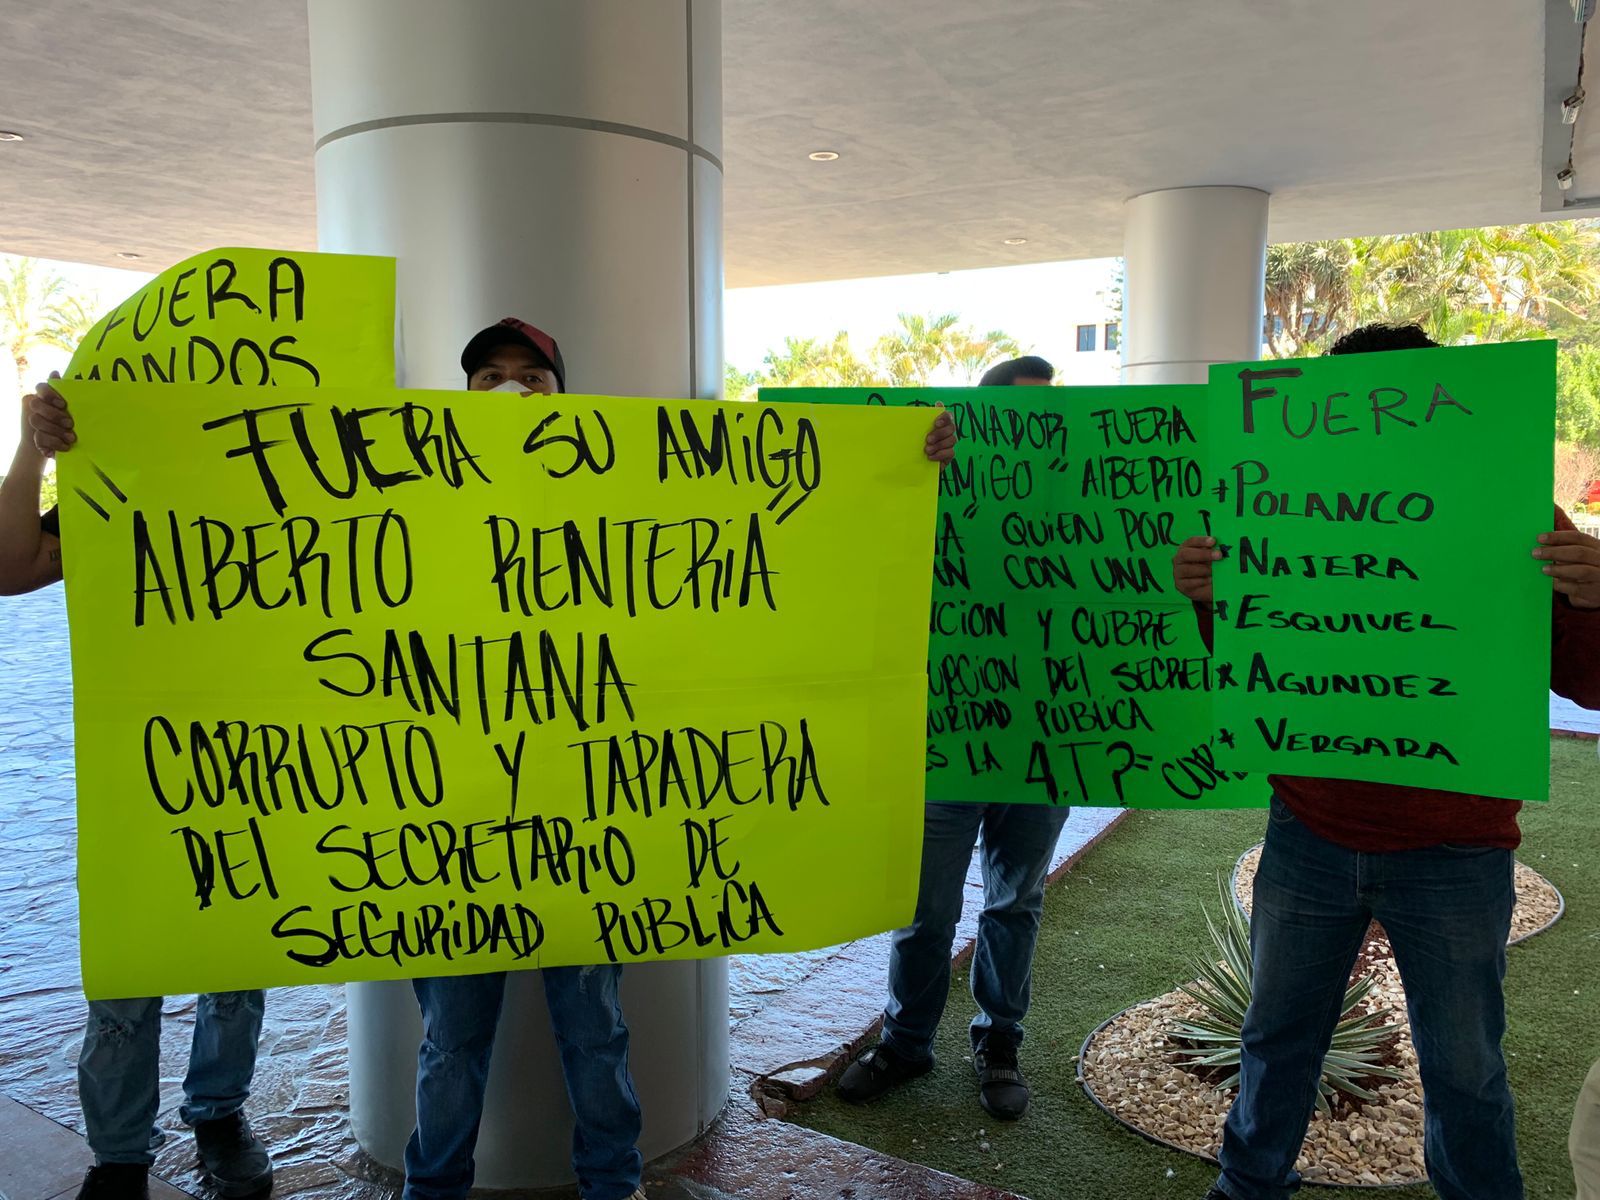 FUERA
MANDOS
"FUERA SU AMIGO
AlBERTO RENTERiA"
SANTANA
CORRUPTO Y TAPADERA
DEl SECRETARiO DE
SEGURiDAD PUBLiCA
FUERA
AMiGO" AlBERTO
QUiEN POR
CON UNA
Y CUBRE
DEl SECRET
PUBLiCA
LA 4.T?
FUERA
* POLANCO
* NAJERA
* ESQUIVEL
* AGUNDEZ
* VERGARA
PUMA